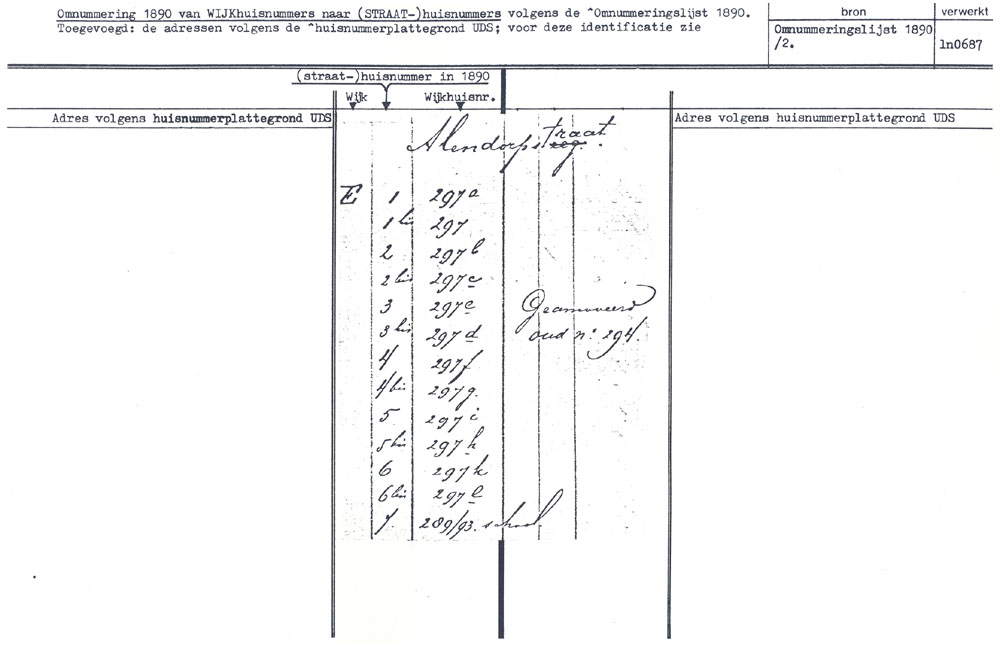 Omnummering 1890 van WIJKhuisnummers naar (STRAAT-)huisnummers volgens de ^Omnummeringslijst 1890.
Toegevoegd: de adressen volgens de ^huisnummerplattegrond UDS; voor deze identificatie zie
bron
Omnummeringslijst 1890
/2.
verwerkt
ln0687
(straat-)huisnummer in 1890
Wijk Wijkhuisnr.
Adres volgens huisnummerplattegrond UDS
Adres volgens huisnummerplattegrond UDS
Alendorpstraat.
E 1 297a
1 bis 297
2 297b
2 bis 297c
3 297e
3 bis 297d
4 297f
4 bis 297g.
5 297i
5 bis 297h
6 297k
6 bis 297l
7. 289/93. school.
Geamoveerd
oud no. 294.